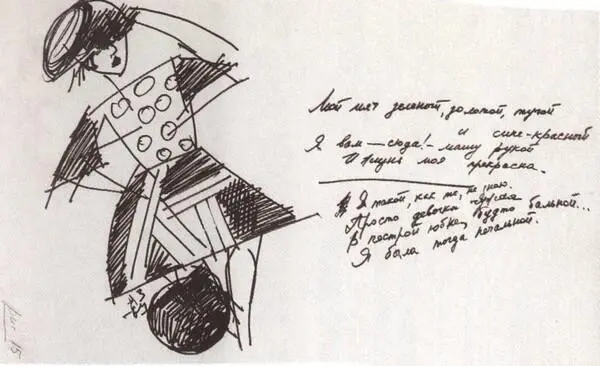 Мой мяч зеленый, золотой, тугой
и сине-красный
Я вам — сюда! — машу рукой
И жизнь моя прекрасна.
Я такой, как те, не знаю.
Просто девочка чужая
В пестрой юбке, будто бальной...
Я была тогда печальной.
Рис 15